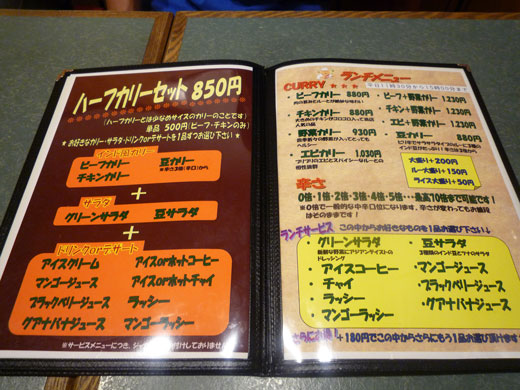 ハーフカリーセット 850円
(ハーフカリーとは少なめサイズのカリーのことです)
単品 500円(ビーフ・チキンのみ)
★お好きなカリー・サラダ・ドリンクorデザートを1品ずつお選び下さい★
インド風カリー
ビーフカリー 豆カリー
チキンカリー
+
サラダ
グリーンサラダ 豆サラダ
+
ドリンクorデザート
アイスクリーム アイスorホットコーヒー
マンゴージュース アイスorホットチャイ
ブラックベリージュース ラッシー
グアナバナジュース マンゴーラッシー
ランチメニュー
CURRY
平日11時30分から15時00分まで
・ビーフカリー 880円
・チキンカリー 880円
・野菜カリー 930円
ヘルシー
・エビカリー 1,030円
・ビーフ+野菜カリー 1,230円
・チキン+野菜カリー 1,230円
・豆カリー 880円
大盛り+200円
ルー大盛り+150円
ライス大盛り+50円
辛さ
0倍・1倍・2倍・3倍・4倍・5倍・・・最高10倍まで可能です!
ランチサービス この中からお好きなものを1品お選び下さい♪
・グリーンサラダ
ドレッシング
・アイスコーヒー
・チャイ
・ラッシー
・マンゴーラッシー
・豆サラダ
・マンゴージュース
・ブラックベリージュース
・グアナバナジュース
さらにお得! +180円でこの中からさらにもう1品お選び頂けます!